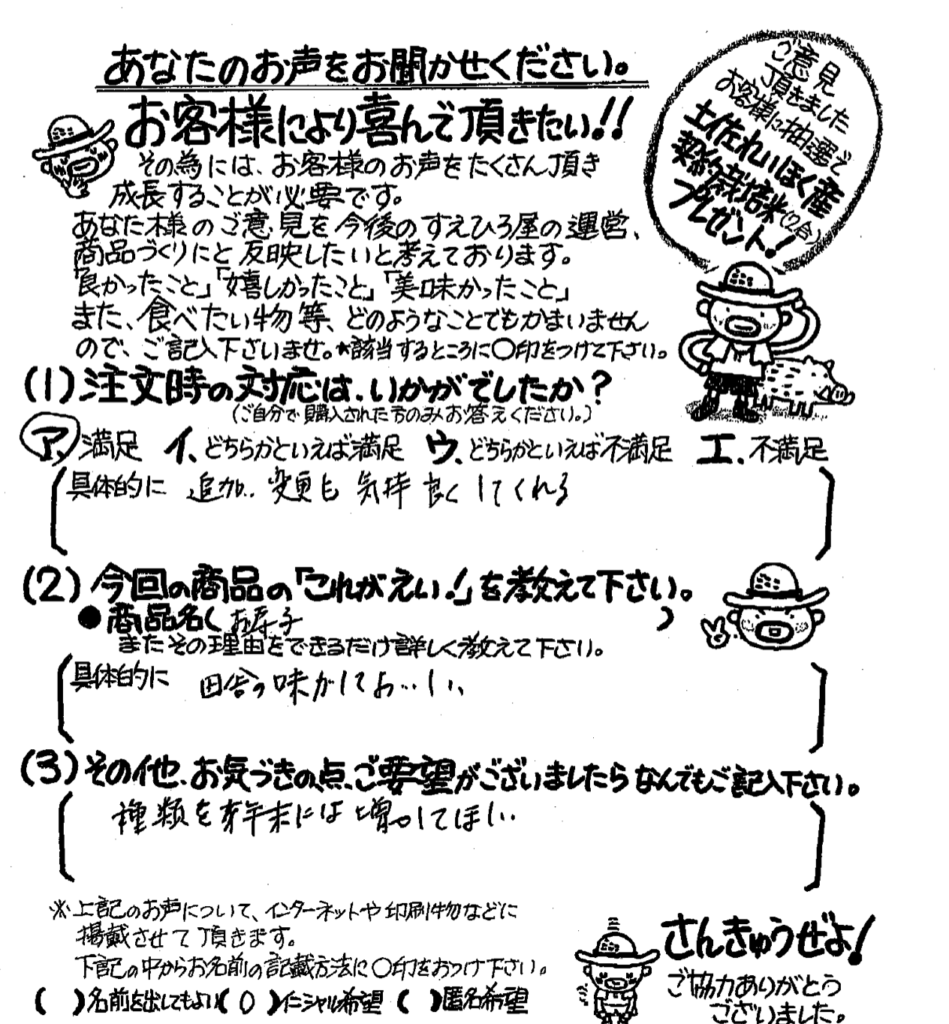 あなたのお声をお聞かせください。
お客様により喜んで頂きたい!!
その為には、お客様のお声をたくさん頂き
成長することが必要です。
あなた様のご意見を今後のすえひろ屋の運営、
商品づくりにと反映したいと考えております。
「良かったこと」「嬉しかったこと」「美味かったこと」
また、食べたい物等、どのようなことでもかまいません
ので、ご記入下さいませ。*該当するところに○印をつけて下さい。
ご意見
頂きました
お客様に抽選で
土佐れいほく産
契約栽培米(2合)
プレゼント!
(1)注文時の対応は、いかがでしたか?
(ご自分で購入された方のみお答えください。)
ア、満足 イ、どちらかといえば満足 ウ、どちらかといえば不満足 エ、不満足
具体的に 追加、変更も 気持良くしてくれる
(2)今回の商品の「これがえい!」を教えて下さい。
●商品名( お寿子 )
またその理由をできるだけ詳しく教えて下さい。
具体的に 田舎の味がしておいしい
(3)その他、お気づきの点、ご要望がございましたらなんでもご記入下さい。
種類を年末には増してほしい
※上記のお声について、インターネットや印刷物などに
掲載させて頂きます。
下記の中からお名前の記載方法に○印をおつけ下さい。
( )名前を出してもよい(○)イニシャル希望 ( )匿名希望
さんきゅうぜよ!
ご協力ありがとう
ございました。